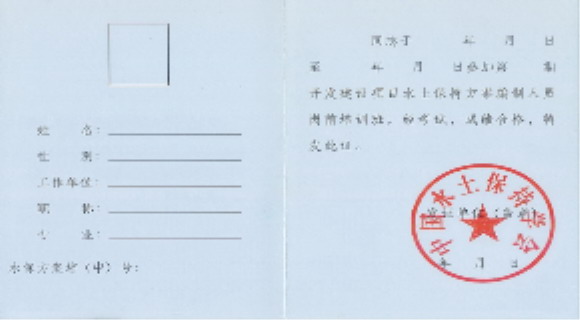 姓 名：
性 别：
工作单位：
职 称：
专 业：
水保方案培（中）号：
同志于 年 月 日
至 年 月 日参加第 期
开发建设项目水土保持方案编制人员
岗前培训班，经考试，成绩合格，特
发此证。
发证单位（盖章）
年 月 日
中国水土保持学会